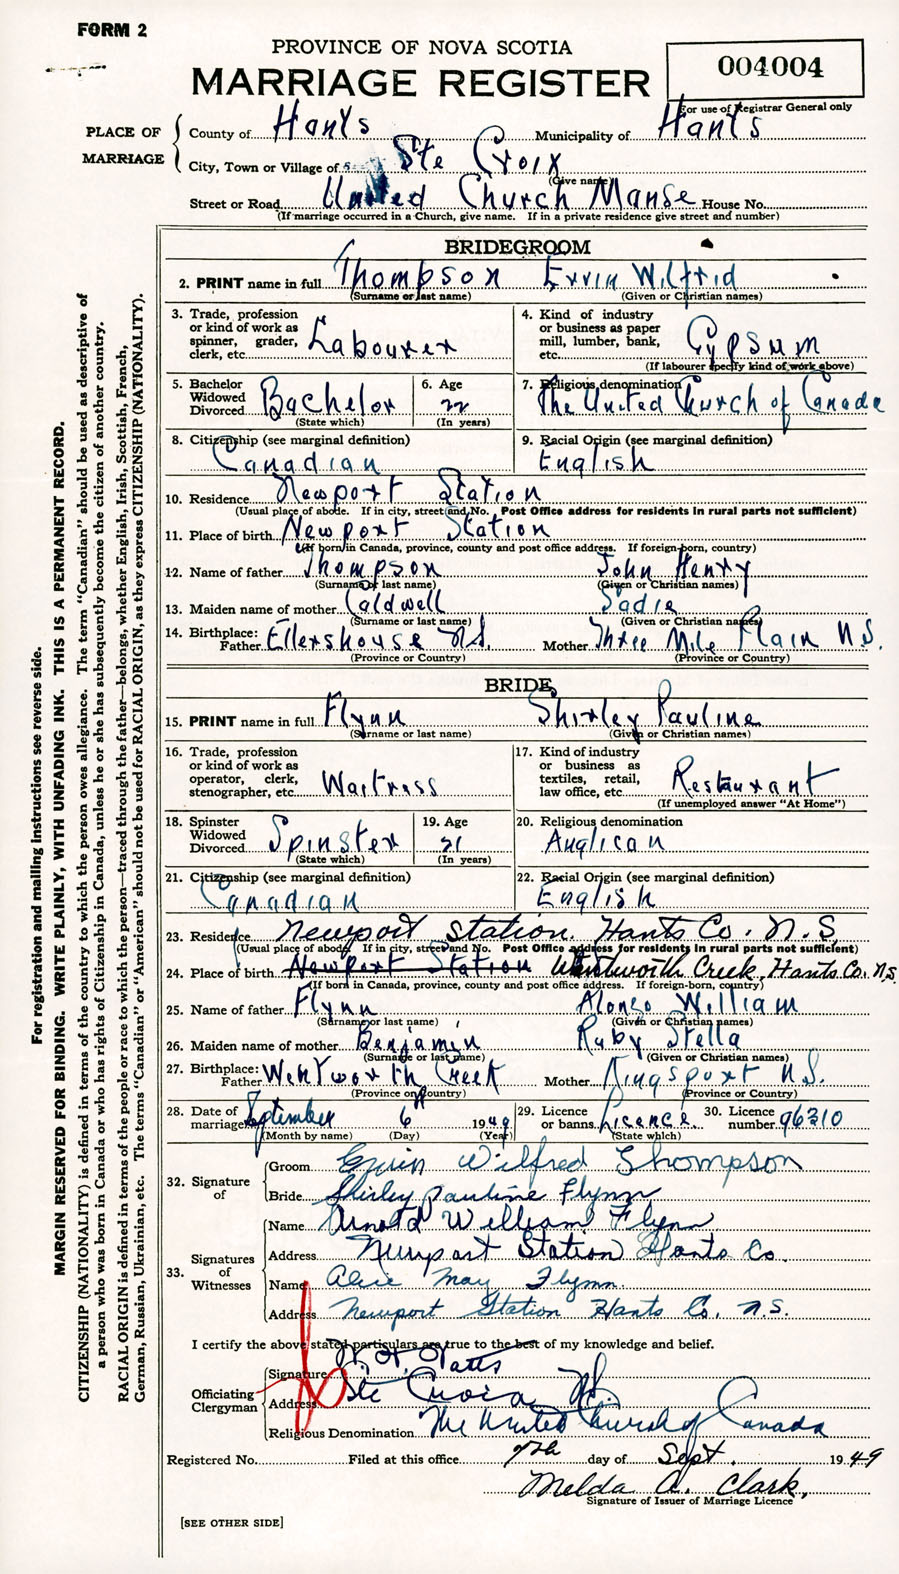 FORM 2
PROVINCE OF NOVA SCOTIA
MARRIAGE REGISTER
004004
For use of Registrar General only
PLACE OF MARRIAGE
County of Hants Municipality of Hants
City, Town or Village of Ste Croix
(Give name)
Street or Road United Church Manse House No.
(If marriage occurred in a Church, give name. If in a private residence give street and number)
BRIDEGROOM
2. PRINT name in full Thompson Ervin Wilfrid
(Surname or last name) (Given or Christian names)
3. Trade, profession or kind of work as spinner, grader, clerk, etc. Labourer
4. Kind of industry or business as paper mill, lumber, bank, etc. Gypsum
(If labourer specify kind of work above)
5. Bachelor Widowed Divorced Bachelor
(State which)
6. Age 22
(In years)
7. Religious denomination
The United Church of Canada
8. Citizenship (see marginal definition)
Canadian
9. Racial Origin (see marginal definition)
English
10. Residence Newport Station
(Usual place of abode. If in city, street and No. Post Office address for residents in rural parts not sufficient)
11. Place of birth Newport Station
(If born in Canada, province, county and post office address. If foreign-born, country)
12. Name of father Thompson John Henry
(Surname or last name) (Given or Christian names)
13. Maiden name of mother Caldwell Sadie
(Surname or last name) (Given or Christian names)
14. Birthplace: Father Ellershouse N.S. Mother Three Mile Plain N.S.
(Province or Country) (Province or Country)
BRIDE
15. PRINT name in full Flynn Shirley Pauline
(Surname or last name) (Given or Christian names)
16. Trade, profession or kind of work as operator, clerk, stenographer, etc. Waitress
17. Kind of industry or business as textiles, retail, law office, etc. Restaurant
(If unemployed answer "At Home")
18. Spinster Widowed Divorced Spinster
(State which)
19. Age 21
(In years)
20. Religious denomination
Anglican
21. Citizenship (see marginal definition)
Canadian
22. Racial Origin (see marginal definition)
English
23. Residence Newport Station, Hants Co. N.S
(Usual place of abode. If in city, street and No. Post Office address for residents in rural parts not sufficient)
24. Place of birth Newport Station Wentworth Creek, Hants Co. N.S.
(If born in Canada, province, county and post office address. If foreign-born, country)
25. Name of father Flynn Alonzo William
(Surname or last name) (Given or Christian names)
26. Maiden name of mother Benjamin Ruby Stella
(Surname or last name) (Given or Christian names)
27. Birthplace: Father Wentworth Creek Mother Kingsport N.S.
(Province or Country) (Province or Country)
28. Date of marriage September 6 1949
(Month by name) (Day) (Year)
29. Licence or banns Licence
(State which)
30. Licence number 96310
32. Signature of
Groom Ervin Wilfred Thompson
Bride Shirley Pauline Flynn
33. Signatures of Witnesses
Name Arnold William Flynn
Address Newport Station Hants Co
Name Alice May Flynn
Address Newport Station Hants Co. N.S.
I certify the above stated particulars are true to the best of my knowledge and belief.
Officiating Clergyman
Signature
Address Ste Croix
Religious Denomination The United Church of Canada
Registered No. Filed at this office 7th day of Sept. 1949
Melda A. Clark,
Signature of Issuer of Marriage Licence
[SEE OTHER SIDE]
For registration and mailing instructions see reverse side.
MARGIN RESERVED FOR BINDING. WRITE PLAINLY, WITH UNFADING INK. THIS IS A PERMANENT RECORD.
CITIZENSHIP (NATIONALITY) is defined in terms of the country to which the person owes allegiance. The term "Canadian" should be used as descriptive of
a person who was born in Canada or who has rights of Citizenship in Canada, unless he or she has subsequently become the citizen of another country.
RACIAL ORIGIN is defined in terms of the people or race to which the person—traced through the father—belongs, whether English, Irish, Scottish, French,
German, Russian, Ukrainian, etc. The terms "Canadian" or "American" should not be used for RACIAL ORIGIN, as they express CITIZENSHIP (NATIONALITY).